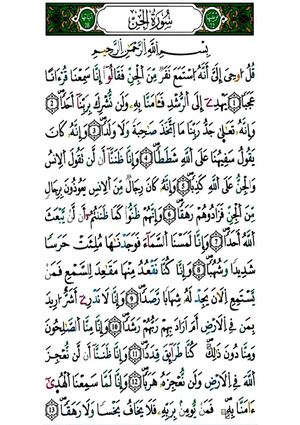 سُورَةُ الْجِنِّ
بِسْمِ اللَّهِ الرَّحْمَٰنِ الرَّحِيمِ
قُلْ اُوحِىَ إِلَىَّ أَنَّهُ اسْتَمَعَ نَفَرٌ مِّنَ الْجِنِّ فَقَالُوا إِنَّا سَمِعْنَا قُرْءَانًا
عَجَبًا ① يَهْدِىٓ إِلَى الرُّشْدِ فَـَٔامَنَّا بِهِۦ وَلَن نُّشْرِكَ بِرَبِّنَا أَحَدًا ②
وَإِنَّهُۥ تَعَٰلَىٰ جَدُّ رَبِّنَا مَا اتَّخَذَ صَٰحِبَةً وَلَا وَلَدًا ③ وَإِنَّهُۥ كَانَ
يَقُولُ سَفِيهُنَا عَلَى اللَّهِ شَطَطًا ④ وَإِنَّا ظَنَنَّا أَن لَّن تَقُولَ الْاِنسُ
وَالْجِنُّ عَلَى اللَّهِ كَذِبًا ⑤ وَإِنَّهُۥ كَانَ رِجَالٌ مِّنَ الْاِنسِ يَعُوذُونَ بِرِجَالٍ
مِّنَ الْجِنِّ فَزَادُوهُمْ رَهَقًا ⑥ وَإِنَّهُمْ ظَنُّوا كَمَا ظَنَنتُمُۥٓ أَن لَّن يَّبْعَثَ
اللَّهُ أَحَدًا ⑦ وَإِنَّا لَمَسْنَا السَّمَآءَ فَوَجَدْنَٰهَا مُلِئَتْ حَرَسًا
شَدِيدًا وَشُهُبًا ⑧ وَإِنَّا كُنَّا نَقْعُدُ مِنْهَا مَقَٰعِدَ لِلسَّمْعِ فَمَنْ
يَّسْتَمِعِ الْاَنَ يَجِدْ لَهُۥ شِهَابًا رَّصَدًا ⑨ وَإِنَّا لَا نَدْرِىٓ أَشَرٌّ اُرِيدَ
بِمَن فِى الْاَرْضِ أَمَ اَرَادَ بِهِمْ رَبُّهُمْ رَشَدًا ⑩ وَإِنَّا مِنَّا الصَّٰلِحُونَ
وَمِنَّا دُونَ ذَٰلِكَ كُنَّا طَرَآئِقَ قِدَدًا ⑪ وَإِنَّا ظَنَنَّآ أَن لَّن نُّعْجِزَ
اللَّهَ فِى الْاَرْضِ وَلَن نُّعْجِزَهُۥ هَرَبًا ⑫ وَإِنَّا لَمَّا سَمِعْنَا الْهُدَىٰٓ
ءَامَنَّا بِهِۦ فَمَن يُّومِنۢ بِرَبِّهِۦ فَلَا يَخَافُ بَخْسًا وَلَا رَهَقًا ⑬